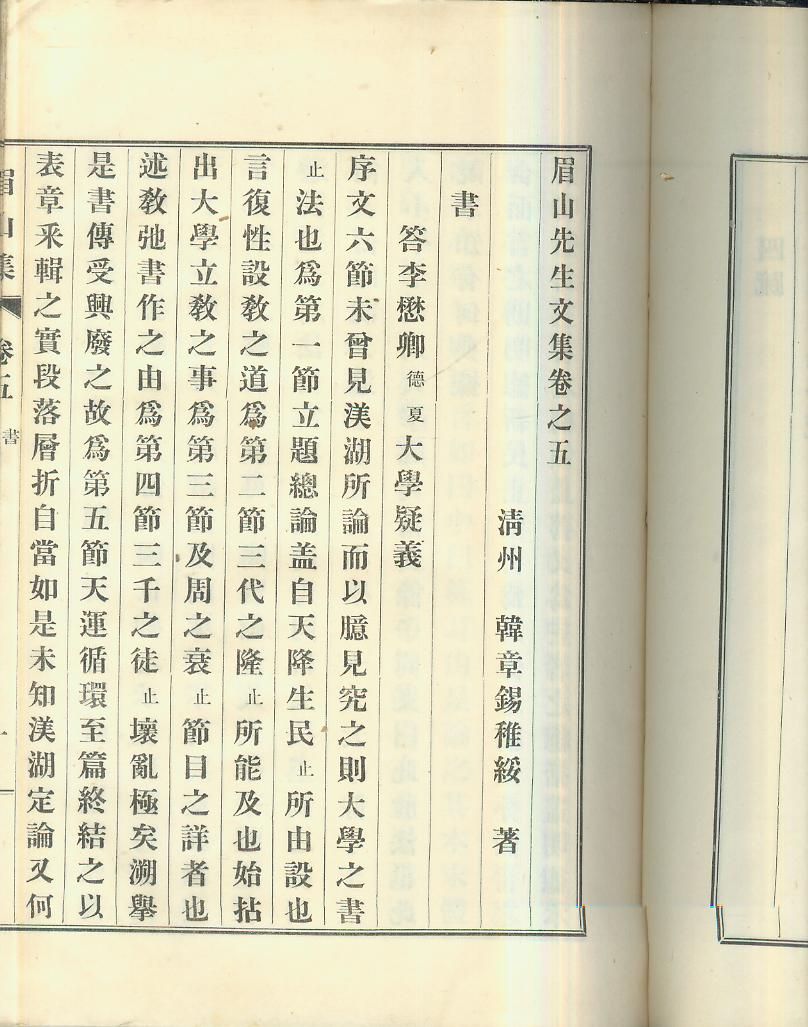 眉山先生文集卷之五
淸州 韓章錫稚綏 著
書
答李懋卿德夏大學疑義
序文六節未曾見渼湖所論而以臆見究之則大學之書
止法也爲第一節立題總論盖自天降生民止所由設也
言復性設敎之道爲第二節三代之隆止所能及也始拈
出大學立敎之事爲第三節及周之衰止節目之詳者也
述敎弛書作之由爲第四節三千之徒止壞亂極矣溯擧
是書傳受興廢之故爲第五節天運循環至篇終結之以
表章釆輯之實段落層折自當如是未知渼湖定論又何
眉山集 卷五 書 一